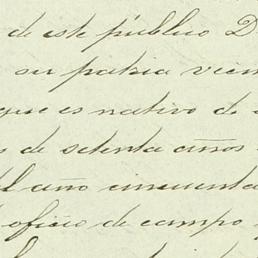 de este público D
su patria vien
que es nativo de
s de setenta años
el año cincuenta
oficio de campo